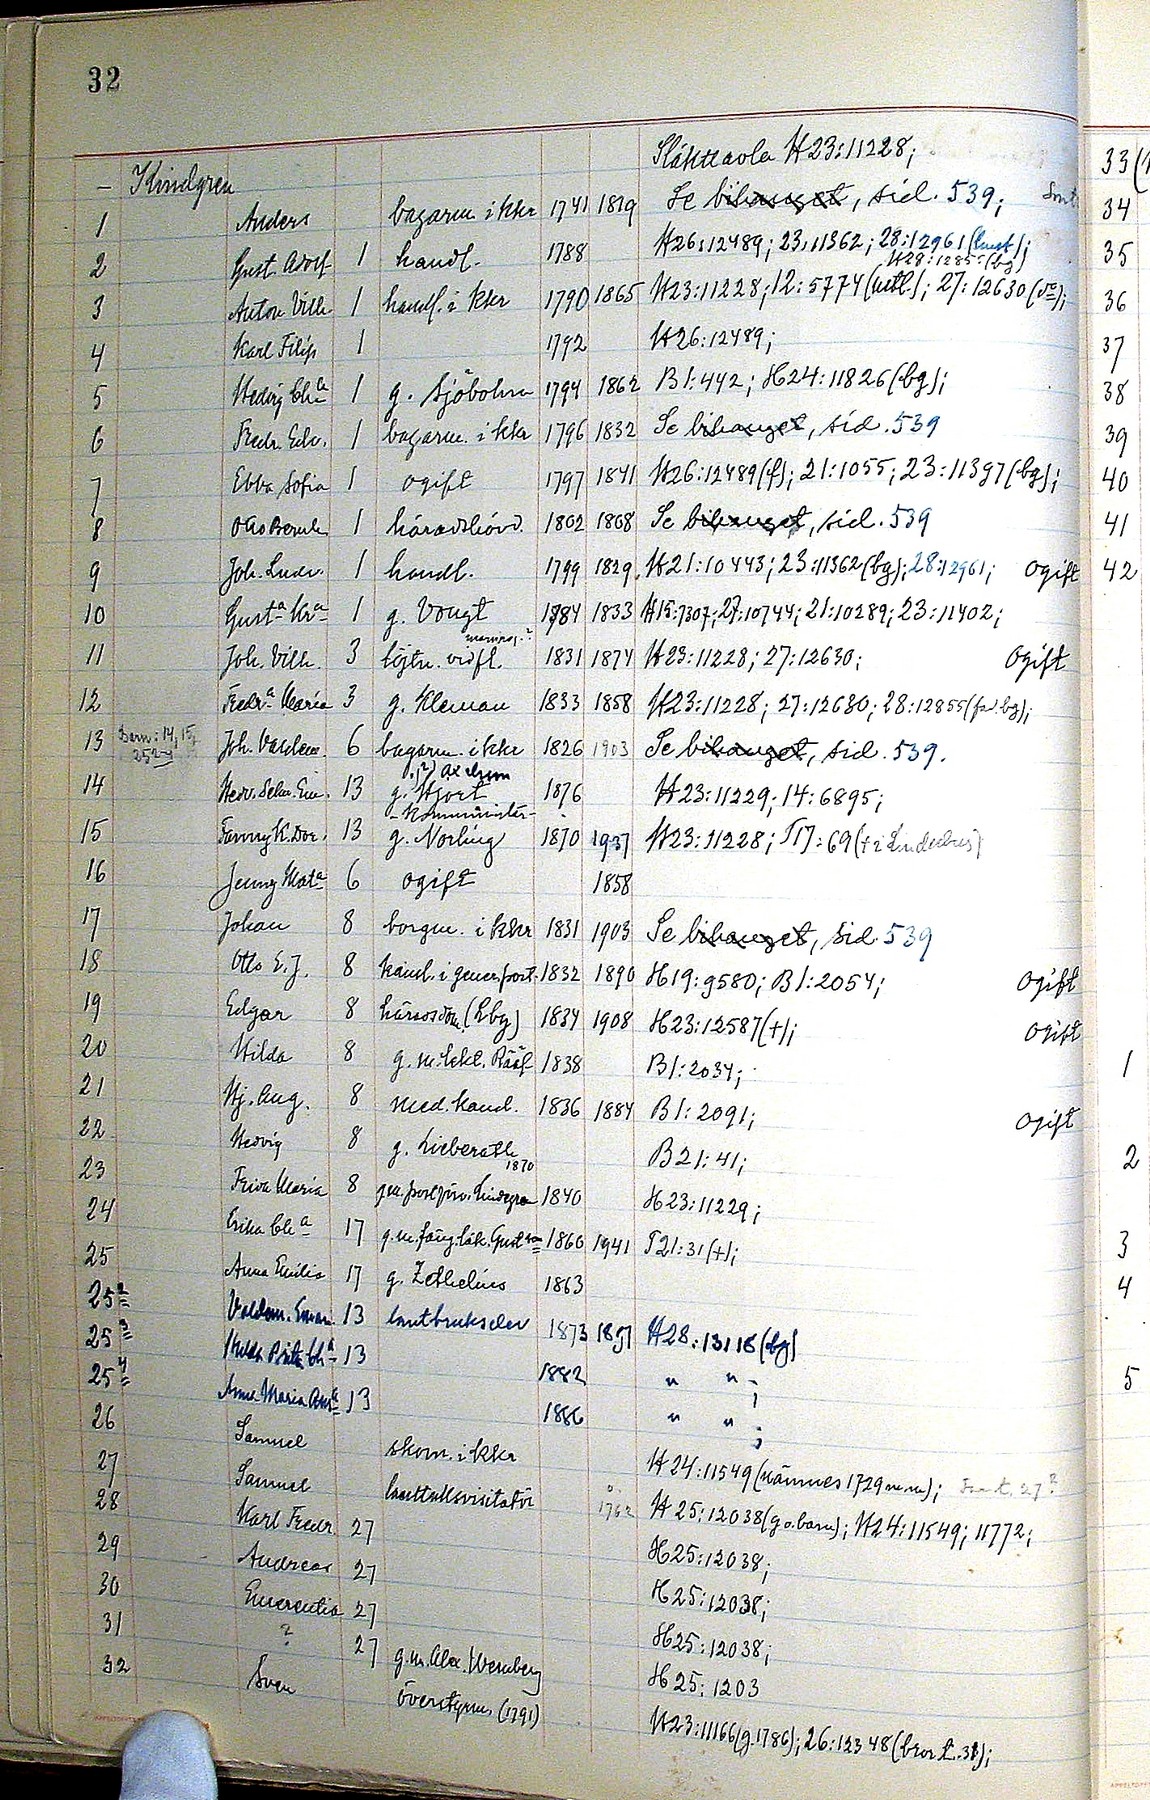 32
Släkttavla H23:11228;
– Kindgren
1 Anders bagarm. i kkr 1741 1819 Se bihanget, sid. 539;
2 Gust. Adolf 1 handl. 1788 H26:12489; 23:11362; 28:12961 (hust);
H28:12855 (bg)
3 Anton Vilh. 1 handl. i kkr 1790 1865 H23:11228; 12:5774 ; 27:12630
4 Karl Filip 1 1792 H26:12489;
5 Hedvig Ch:a 1 g. Sjöbohm 1794 1862 B1:442; H24:11826 (bg);
6 Fredr. Edv. 1 bagarm. i kkr 1796 1832 Se bihanget, sid. 539
7 Ebba Sofia 1 ogift 1797 1841 H26:12489 (f); 21:1055; 23:11397 (bg);
8 Otto Bernh. 1 häradshövd. 1802 1808 Se bihanget, sid. 539
9 Joh. Ludv. 1 handl. 1799 1829. H21:10443; 23:11362 (bg); 28:12961; Ogift
10 Gust:a Kr:a 1 g. Vougt 1784 1833 H15:7307; 27:10744; 21:10289; 23:11402;
11 Joh. Vilh. 3 löjtn. vid fl. 1831 1874 H23:11228; 27:12630; Ogift
12 Fredr:a Maria 3 g. Kleman 1833 1858 H23:11228; 27:12680; 28:12855 (fad. bg);
13 Barn: 14, 15, 25 2-4 Joh. Valdem. 6 bagarm. i kkr 1826 1903 Se bihanget, sid. 539.
14 Hedv. Selm. Em. 13 g. Hjort 1876 H23:11229; 14:6895;
– Komminister –
15 Fanny K. Dor. 13 g. Norling 1870 1937 H23:11228; T17:69
16 Jenny Mat:a 6 ogift 1858
17 Johan 8 borgm. i kkr 1831 1903 Se bihanget, sid. 539
18 Otto E. J. 8 kansl. i gener. post. 1832 1890 H19:9580; B1:2054; Ogift
19 Edgar 8 häradsdom. (hbg) 1834 1908 H23:12587 (+); Ogift
20 Hilda 8 g. m. lekt. Rääf 1838 B1:2034;
21 Hj. Aug. 8 med. kand. 1836 1884 B1:2091; Ogift
22 Hedvig 8 g. Lieberath B21:41;
1870
23 Frida Maria 8 Lindgren 1840 H23:11229;
24 Erika Ch:a 17 g. m. fäng. läk. 1860 1941 T21:31 (+);
25 Anna Emilia 17 g. Zethelius 1863
25 2 Valdem. Eman. 13 lantbrukselev 1873 H28:13118 (bg)
25 3 Hulda Brita Ch:a 13 1882 " " ;
25 4 Anna Maria 13 1886 " " ;
26 Samuel skom. i kkr H24:11549 (nämnes 1729 m.m);
27 Samuel lanttullsvisitatör 1762 H25:12038 (g o. barn); H24:11549; 11772;
28 Karl Fredr. 27 H25:12038;
29 Andreas 27 H25:12038;
30 Emerentia 27 H25:12038;
31 ? 27 g. m. Alex. Wernberg H25:1203
32 Sven överstyrm. (1791) H23:11166 (g. 1786); 26:12348 (bror t. 31);
33
34
35
36
37
38
39
40
41
42
1
2
3
4
5